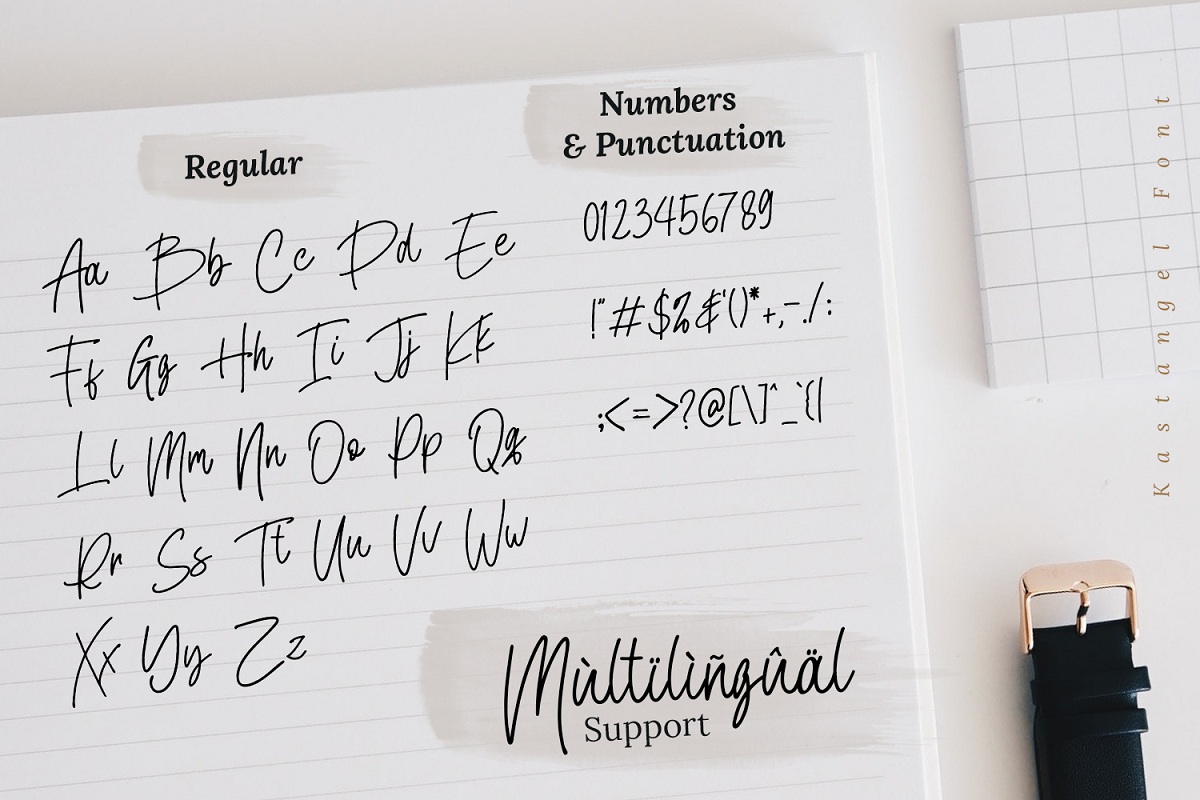 Regular
Aa Bb Cc Dd Ee
Ff Gg Hh Ii Jj Kk
Ll Mm Nn Oo Pp Qq
Rr Ss Tt Uu Vv Ww
Xx Yy Zz
Numbers
& Punctuation
0123456789
!"#$%&'()*+,-./:
;<=>?@[\]^_`{|
Mùltïlìñgûäl
Support
Kastangel Font